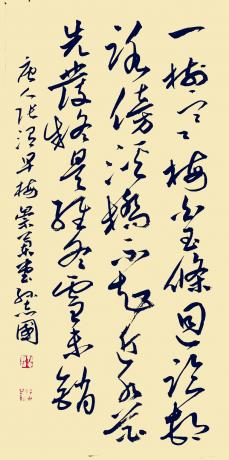 一樹寒梅白玉條迥臨村
路傍溪橋不知近水花
先發疑是經冬雪未銷
唐人張謂早梅